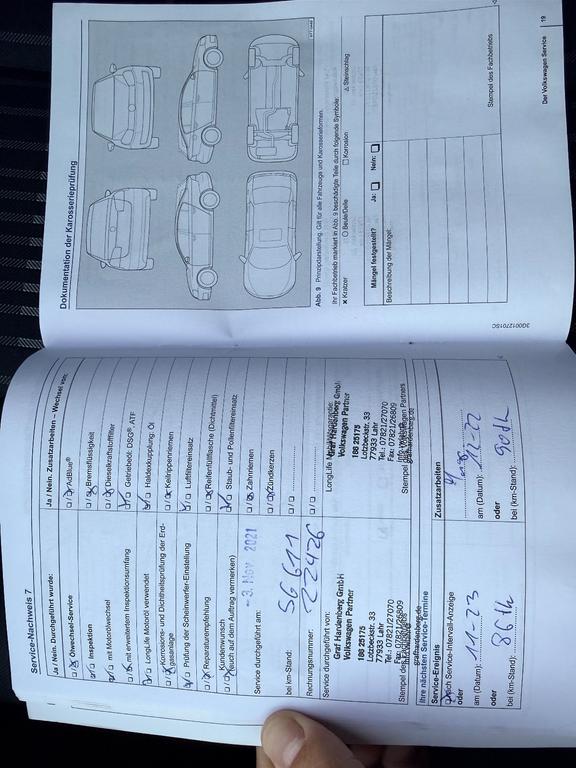 Service-Nachweis 7
Ja / Nein. Durchgeführt wurde:
Ölwechsel-Service
Inspektion
mit Motorölwechsel
mit erweitertem Inspektionsumfang
LongLife Motoröl verwendet
Korrosions- und Dichtheitsprüfung der Erd-
gasanlage
Prüfung der Scheinwerfer-Einstellung
Reparaturempfehlung
Kundenwunsch
(auch auf dem Auftrag vermerken)
Service durchgeführt am: - 3. Nov. 2021
bei km-Stand: 56611
Rechnungsnummer: 22426
Service durchgeführt von:
Graf Hardenberg GmbH
Volkswagen Partner
186 25175
Lotzbeckstr. 33
77933 Lahr
Tel.: 07821/27070
Fax: 07821/26809
Stempel des
grafhardenberg.de
Ja / Nein. Zusatzarbeiten – Wechsel von:
AdBlue®
Bremsflüssigkeit
Dieselkraftstofffilter
Getriebeöl: DSG®, ATF
Haldexkupplung: Öl
Keilrippenriemen
Luftfiltereinsatz
Reifenfüllflasche (Dichtmittel)
Staub- und Pollenfiltereinsatz
Zahnriemen
Zündkerzen
LongLife
Graf Hardenberg GmbH
Volkswagen Partner
186 25175
Lotzbeckstr. 33
77933 Lahr
Tel.: 07821/27070
Fax: 07821/26809
Stempel des Volkswagen Partners
grafhardenberg.de
Ihre nächsten Service-Termine
Service-Ereignis
nach Service-Intervall-Anzeige
oder
am (Datum): 11-23
oder
bei (km-Stand):
Zusatzarbeiten
am (Datum):
oder
bei (km-Stand):
Dokumentation der Karosserieprüfung
Abb. 9 Prinzipdarstellung. Gilt für alle Fahrzeuge und Karosserieformen.
Ihr Fachbetrieb markiert in Abb. 9 beschädigte Teile durch folgende Symbole:
✖ Kratzer ○ Beule/Delle □ Korrosion △ Steinschlag
Mängel festgestellt? Ja: Nein:
Beschreibung der Mängel:
Stempel des Fachbetriebs
3G0012701SC
Der Volkswagen Service 19